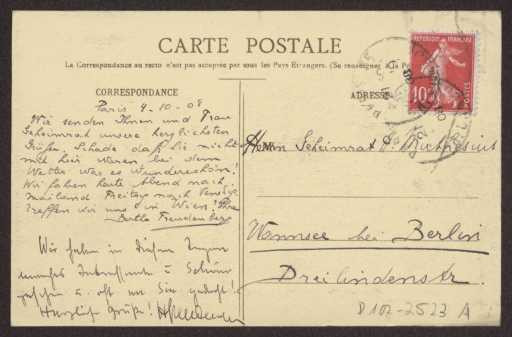 CARTE POSTALE
La Correspondance au recto n'est pas acceptée par tous les Pays Etrangers. (Se renseigner à la
CORRESPONDANCE
ADRESSE
REPUBLIQUE FRANÇAISE
10
POSTES
Paris 9-10-08
Wir senden Ihnen und Frau
Geheimrat unsere herzlichsten
Grüße. Schade daß Sie nicht
mit hier waren, bei dem
Wetter was es wunderschön!
Wir fahren heute Abend nach
Mailand Freitag nach Venedig
treffen wir uns in Wien! Ihre
Bertha Freudenberg
Wir haben in diesen Tagen
u. oft an Sie gedacht!
Herzliche Grüße!
Herrn Geheimrat H. Muthesius
Wannsee bei Berlin
Dreilindenstr.
D 102-2523 A